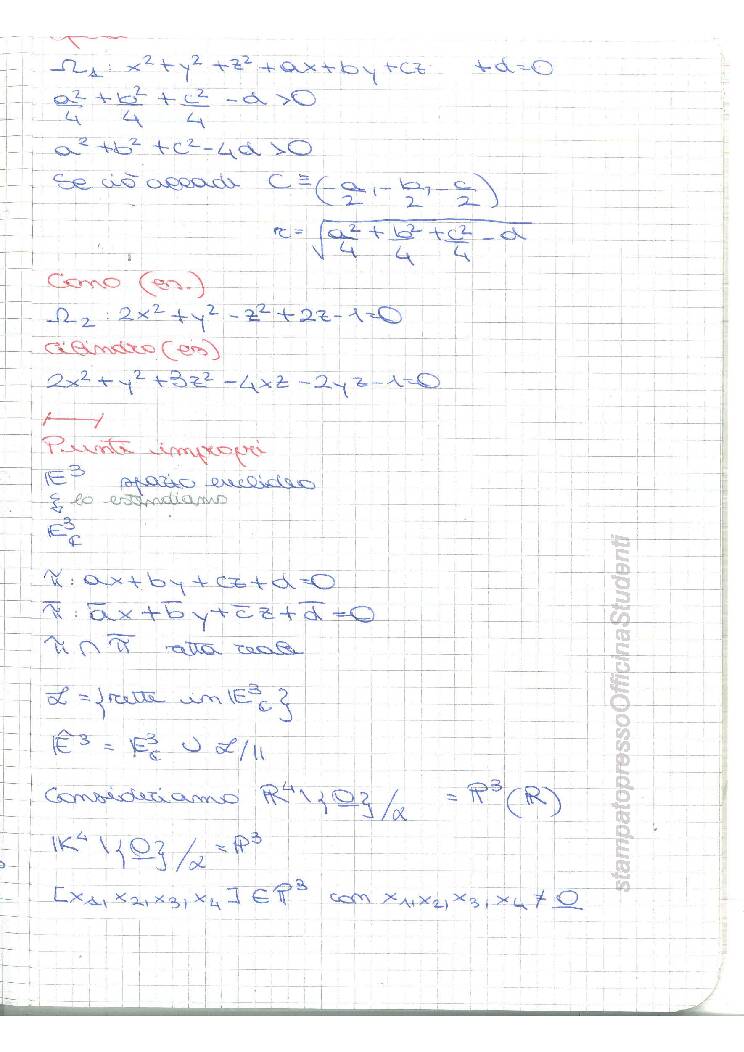 Ω₁: x² + y² + z² + ax + by + cz + d = 0
a²/4 + b²/4 + c²/4 - d > 0
a² + b² + c² - 4d > 0
Se ciò accade C ≡ (-a/2, -b/2, -c/2)
r = √(a²/4 + b²/4 + c²/4 - d)
Cono (es.)
Ω₂: 2x² + y² - z² + 2z - 1 = 0
Cilindro (es)
2x² + y² + 3z² - 4xz - 2yz - 1 = 0
Punti impropri
E³ spazio euclideo
lo estendiamo
E³_C
π: ax + by + cz + d = 0
π̅: a̅x + b̅y + c̅z + d̅ = 0
π ∩ π̅ retta reale
ℒ = {rette in E³_C}
Ê³ = E³_C ∪ ℒ/∥
Consideriamo ℝ⁴ \ {0}/α = ℙ³(ℝ)
𝕂⁴ \ {0}/α = ℙ³
[x₁, x₂, x₃, x₄] ∈ ℙ³ con x₁, x₂, x₃, x₄ ≠ 0
stampatopressoOfficinaStudenti